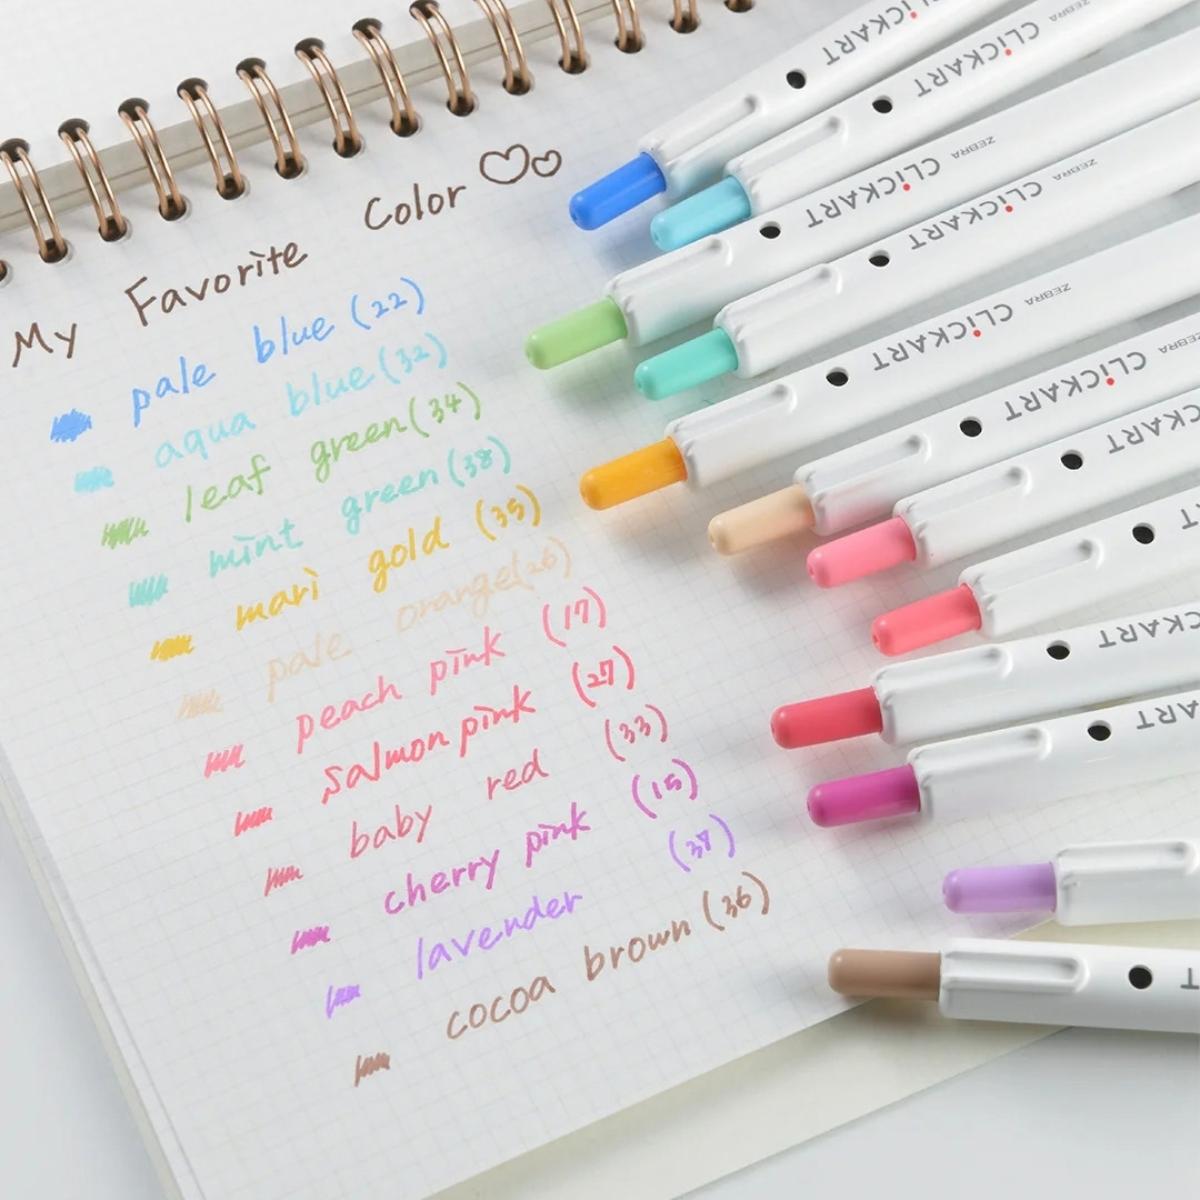 My Favorite Color
pale blue (22)
aqua blue (32)
leaf green (34)
mint green (38)
mari gold (35)
pale orange (26)
peach pink (17)
salmon pink (27)
baby red (33)
cherry pink (15)
lavender (37)
cocoa brown (36)
CLiCKART
CLiCKART ZEBRA
CLiCKART ZEBRA
CLiCKART ZEBRA
CLiCKART ZEBRA
CLiCKART ZEBRA
CKART
T
CKART
ART
T